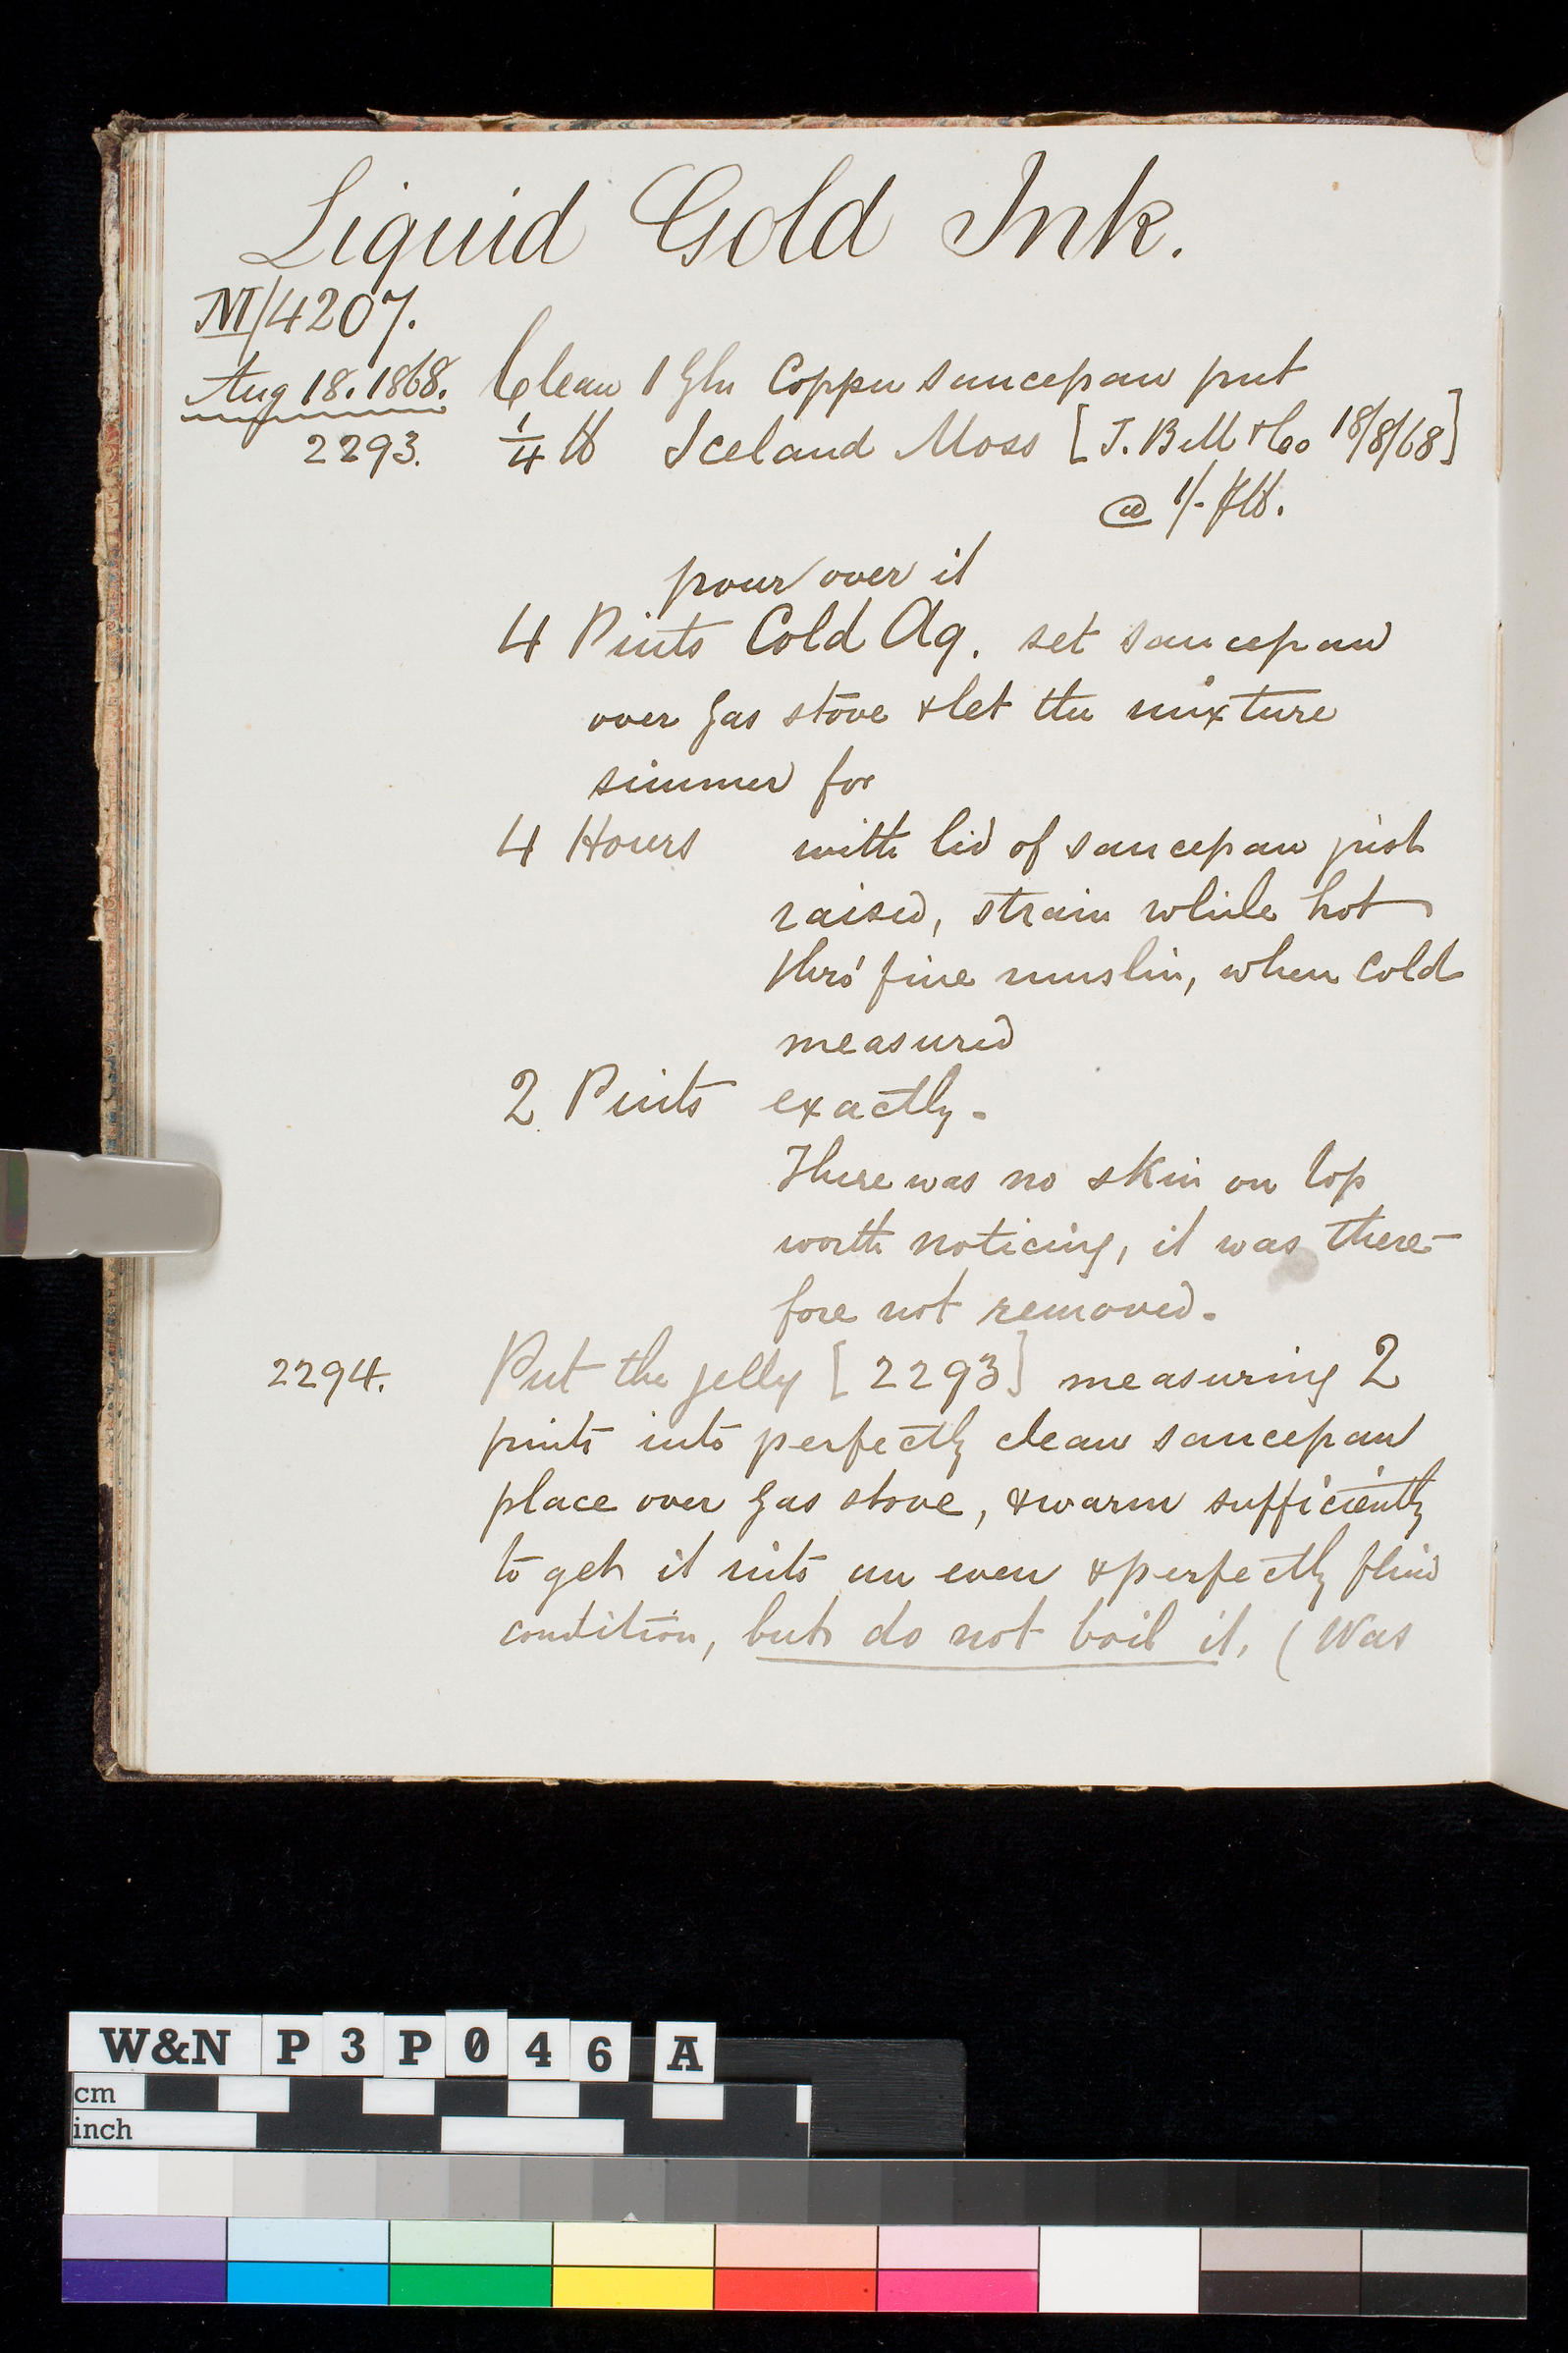 Liquid Gold Ink.
M/4207.
Aug 18. 1868. Clean 1 Gln Copper saucepan put
2293. 1/4 lb Iceland Moss [J. Bell & Co 18/8/68]
@ 1/- ℔ lb.
pour over it
4 Pints Cold Aq. set saucepan
over gas stove & let the mixture
simmer for
4 Hours with lid of saucepan just
raised, strain while hot
thro' fine muslin, when cold
measured
2 Pints exactly.
There was no skin on top
worth noticing, it was there-
fore not removed.
2294. Put the jelly [2293] measuring 2
pints into perfectly clean saucepan
place over gas stove, & warm sufficiently
to get it into an even & perfectly fluid
condition, but do not boil it. (Was
W&N P3P046 A
cm
inch